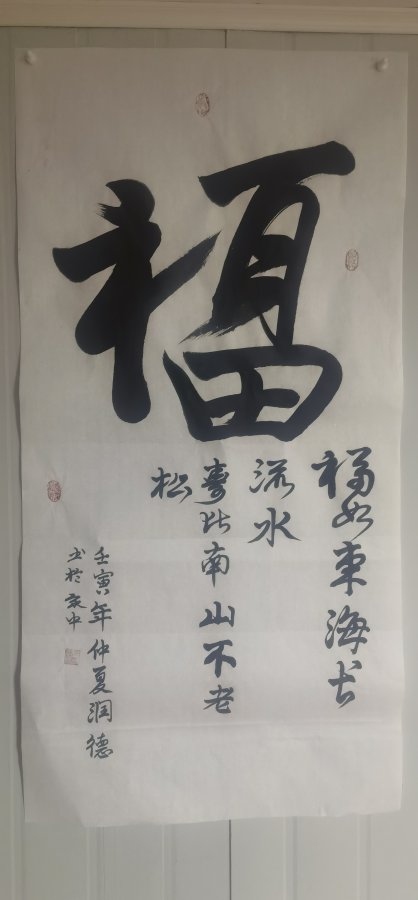 福
福如東海长
流水
寿比南山不老
松
壬寅年仲夏润德
书於家中